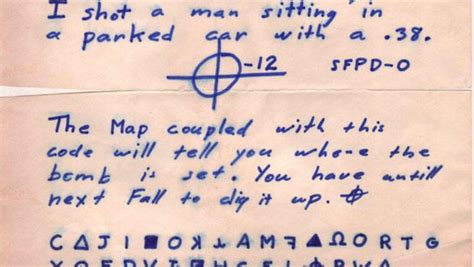 I shot a man sitting in
a parked car with a .38.
⌖-12 SFPD-0
The Map coupled with this
code will tell you where the
bomb is set. You have untill
next Fall to dig it up. ⌖
C Δ J I ■ O ʞ ⅄ A M ꟻ ▲ Ω O R T G